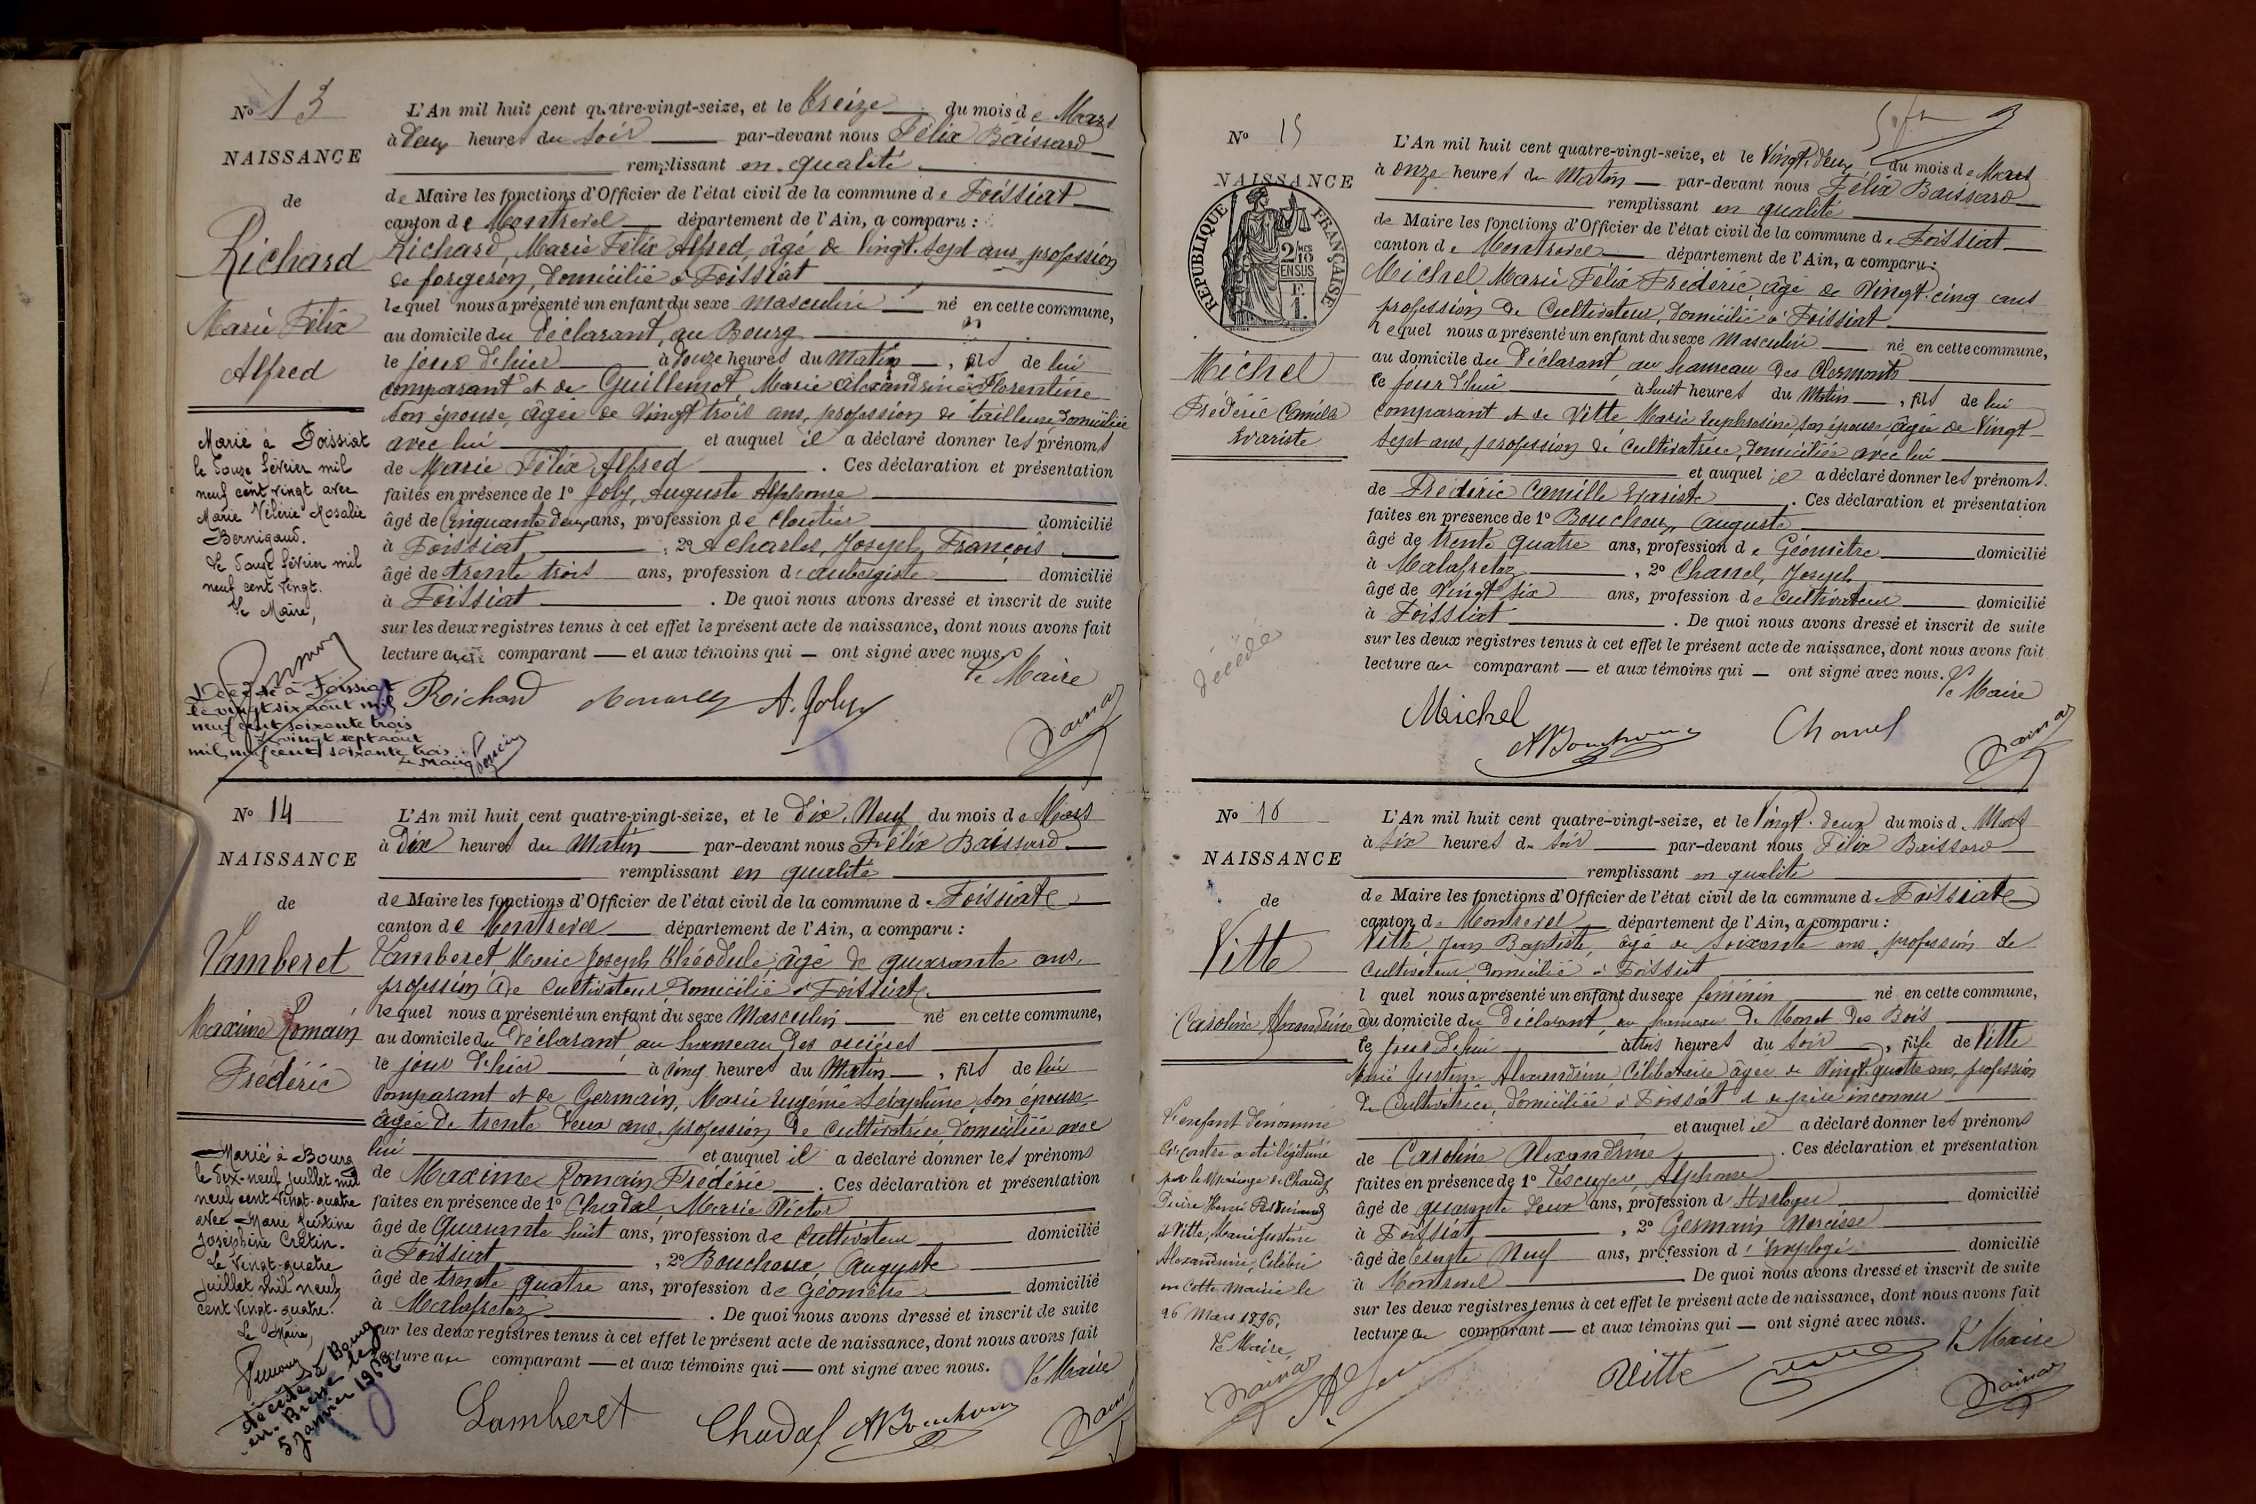 N° 13
NAISSANCE
de
Richard
Marie Félix
Alfred
Marié à Foissiat
le douze Février mil
neuf cent vingt avec
Marie Valérie Rosalie
Bernigaud.
Le douze Février mil
neuf cent vingt.
Le Maire,
Décédé à Foissiat
le vingt six août mil
neuf cent soixante trois
Le vingt sept août
mil neuf cent soixante trois
Le Maire
L'An mil huit cent quatre-vingt-seize, et le treize du mois de Mars
à deux heures du soir par-devant nous Félix Baissard
remplissant en qualité
de Maire les fonctions d'Officier de l'état civil de la commune de Foissiat
canton de Montrevel département de l'Ain, a comparu :
Richard, Marie Félix Alfred, âgé de vingt-sept ans, profession
de forgeron, domicilié à Foissiat
lequel nous a présenté un enfant du sexe masculin né en cette commune,
au domicile du déclarant, au Bourg
le jour d'hier à douze heures du matin, fils de lui
comparant et de Guillemot, Marie Alexandrine Florentine
son épouse, âgée de vingt trois ans, profession de tailleuse domiciliée
avec lui et auquel il a déclaré donner les prénoms
de Marie Félix Alfred. Ces déclaration et présentation
faites en présence de 1° Joly, Auguste Alphonse
âgé de cinquante deux ans, profession de cloutier domicilié
à Foissiat, 2° Acharles, Joseph, François
âgé de trente trois ans, profession d'aubergiste domicilié
à Foissiat. De quoi nous avons dressé et inscrit de suite
sur les deux registres tenus à cet effet le présent acte de naissance, dont nous avons fait
lecture au comparant et aux témoins qui ont signé avec nous.
Le Maire
Richard A. Joly
N° 14
NAISSANCE
de
Vamberet
Maxime Romain
Frédéric
Marié à Bourg
le dix-neuf Juillet mil
neuf cent vingt-quatre
avec Marie Justine
Joséphine Crétin.
Le vingt-quatre
Juillet mil neuf
cent vingt-quatre.
Le Maire,
décédé à Bourg
en Bresse le
5 janvier 1962
L'An mil huit cent quatre-vingt-seize, et le dix-Neuf du mois de Mars
à dix heures du Matin par-devant nous Félix Baissard
remplissant en qualité
de Maire les fonctions d'Officier de l'état civil de la commune de Foissiat
canton de Montrevel département de l'Ain, a comparu :
Vamberet Marie Joseph Théodule, âgé de quarante ans,
profession de cultivateur domicilié à Foissiat
lequel nous a présenté un enfant du sexe Masculin né en cette commune,
au domicile du déclarant au hameau des
le jour d'hier à cinq heures du Matin, fils de lui
comparant et de Germain, Marie Eugénie Séraphine, son épouse
âgée de trente deux ans, profession de cultivatrice domiciliée avec
lui et auquel il a déclaré donner les prénoms
de Maxime Romain Frédéric. Ces déclaration et présentation
faites en présence de 1° Chudal, Marie Victor
âgé de quarante huit ans, profession de cultivateur domicilié
à Foissiat, 2° Bouchoux, Auguste
âgé de trente quatre ans, profession de Géomètre domicilié
à Malafretaz. De quoi nous avons dressé et inscrit de suite
sur les deux registres tenus à cet effet le présent acte de naissance, dont nous avons fait
lecture au comparant et aux témoins qui ont signé avec nous.
Le Maire
Vamberet Chudal ABouchoux
N° 15
NAISSANCE
RÉPUBLIQUE FRANÇAISE
2/10 EN SUS
F. 1.
Michel
Frédéric Camille
Evariste
décédé
L'An mil huit cent quatre-vingt-seize, et le vingt-deux du mois de Mars
à onze heures du Matin par-devant nous Félix Baissard
remplissant en qualité
de Maire les fonctions d'Officier de l'état civil de la commune de Foissiat
canton de Montrevel département de l'Ain, a comparu :
Michel Marie Félix Frédéric, âgé de vingt-cinq ans
profession de Cultivateur, domicilié à Foissiat
lequel nous a présenté un enfant du sexe Masculin né en cette commune,
au domicile du déclarant au hameau des Clermonts
le jour d'hui à huit heures du Matin, fils de lui
comparant et de Vitte Marie Euphrosine, son épouse, âgée de vingt
sept ans, profession de cultivatrice, domiciliée avec lui
et auquel il a déclaré donner les prénoms
de Frédéric Camille Evariste. Ces déclaration et présentation
faites en présence de 1° Bouchoux, Auguste
âgé de trente quatre ans, profession de Géomètre domicilié
à Malafretaz, 2° Chanel, Joseph
âgé de vingt six ans, profession de cultivateur domicilié
à Foissiat. De quoi nous avons dressé et inscrit de suite
sur les deux registres tenus à cet effet le présent acte de naissance, dont nous avons fait
lecture au comparant et aux témoins qui ont signé avec nous.
Le Maire
Michel ABouchoux Chanel
N° 16
NAISSANCE
de
Vitte
Caroline Alexandrine
L'enfant dénommé
ci-contre a été légitimé
par le mariage de
et Vitte, Marie Justine
Alexandrine, Célébré
en cette mairie le
26 Mars 1896.
Le Maire,
L'An mil huit cent quatre-vingt-seize, et le vingt-deux du mois de Mars
à six heures du soir par-devant nous Félix Baissard
remplissant en qualité
de Maire les fonctions d'Officier de l'état civil de la commune de Foissiat
canton de Montrevel département de l'Ain, a comparu :
Vitte Jean Baptiste, âgé de soixante ans, profession de
cultivateur domicilié à Foissiat
lequel nous a présenté un enfant du sexe féminin né en cette commune,
au domicile du déclarant, au hameau de Monet des Bois
le jour d'hui à trois heures du soir, fille de Vitte
Marie Justine Alexandrine, célibataire âgée de vingt-quatre ans, profession
de cultivatrice, domiciliée à Foissiat et de père inconnu
et auquel il a déclaré donner les prénoms
de Caroline Alexandrine. Ces déclaration et présentation
faites en présence de 1° Alphonse
âgé de quarante deux ans, profession d'Horloger domicilié
à Foissiat, 2° Germain Narcisse
âgé de trente Neuf ans, profession d'Employé domicilié
à Montrevel. De quoi nous avons dressé et inscrit de suite
sur les deux registres tenus à cet effet le présent acte de naissance, dont nous avons fait
lecture au comparant et aux témoins qui ont signé avec nous.
Le Maire
Vitte